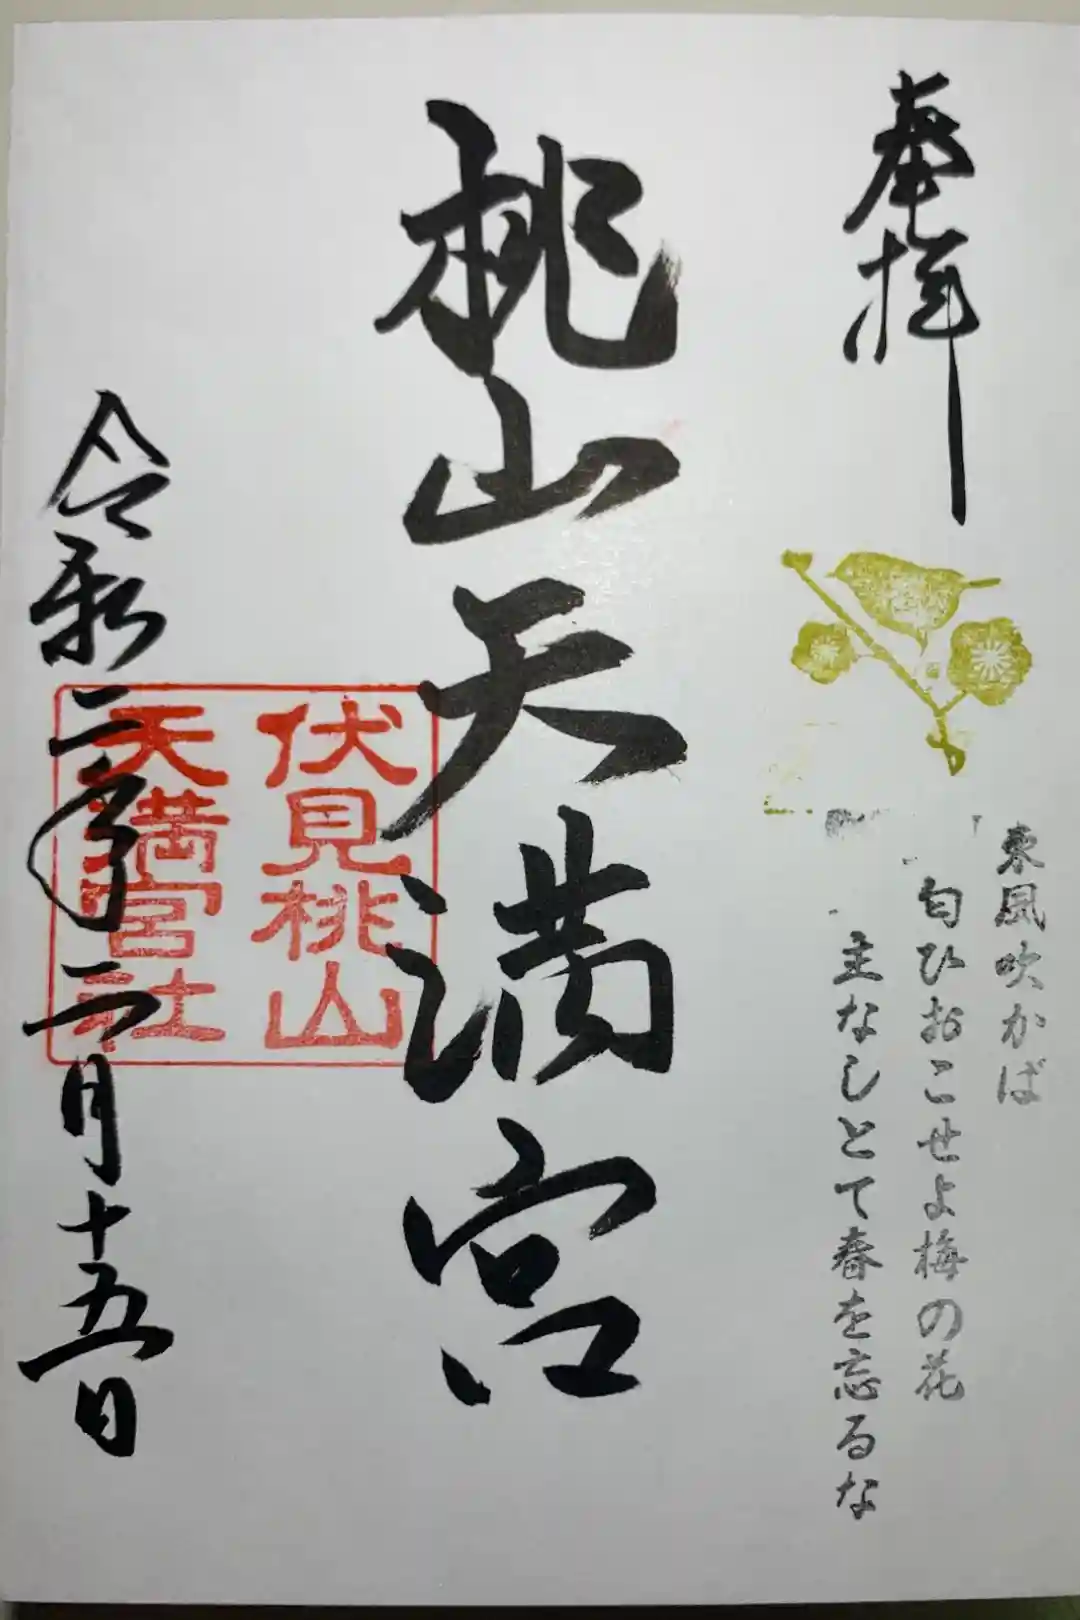 奉拝
東風吹かば
匂ひおこせよ梅の花
主なしとて春を忘るな
桃山天満宮
伏見桃山
天満宮社
令和二年二月十五日